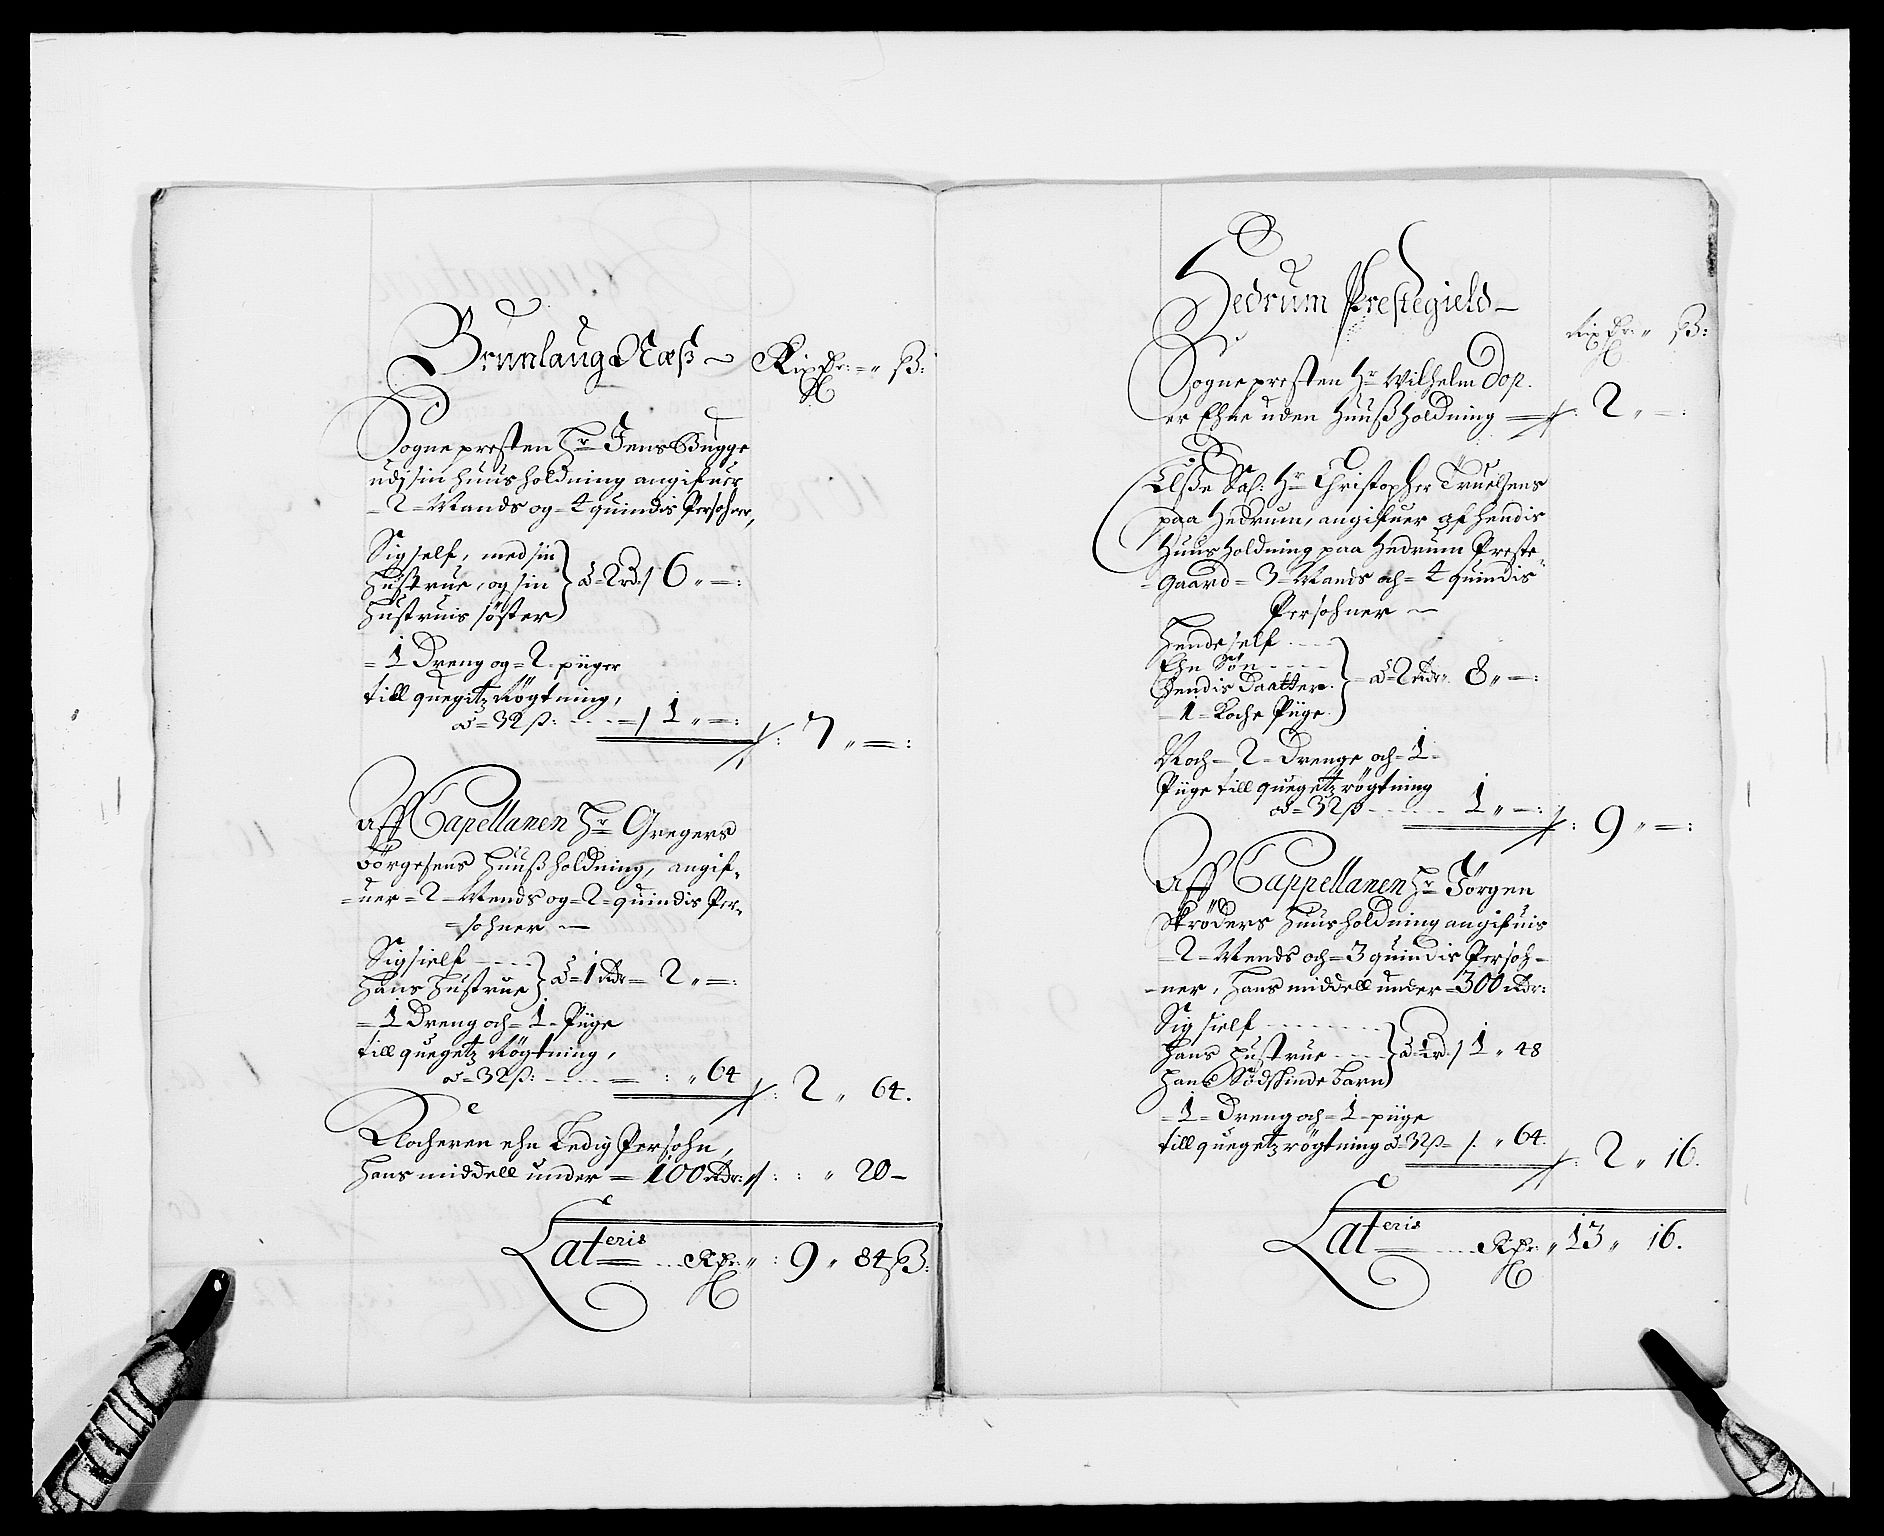 Brunlaug Næß Rixdr: ß:
Sognepresten Hr Jens Bugge
udj sin huusholdning angifuer
- 2 - Mands og - 4 quindis Persohner,
Sig self, med sin
hustrue, og sin
hustruis söster
à 2 rd: / 6 „ -:
- 1 Dreng og - 2 - piiger
till quegitz Rögtning,
à - 32 ß: - - - / 1 „ -: /: 7 „ -:
Aff Capellanen Hr Gregers
Börgesens Huußholdning, angif-
-uer - 2 - Mends og - 2 - quindis Per-
-sohner -
Sig sielf - - -
Hans Hustrue
à - 1 Rdr - 2 „ -:
- 1 Dreng och - 1 - Piige
till quegetz Rögtning,
à - 32 ß: - - - : „ 64 /: 2 „ 64.
Klocheren ehn Ledig Persohn,
hans middell under - 100 Rdr: /: : „ 20 -
Lateris - - - Rdr: „ : 9 „ 84 ß:
Hedrum Prestegield -
Rixdr: „ ß:
Sognepresten Hr Wilhelm Dop.
er Ehne uden Huußholdning - /: 2 „ -:
Elße Sal: Hr Christopher Truelsens
paa Hedrum, angifuer af hendis
Huusholdning paa Hedrum Preste-
-Gaard - 3 - Mands och - 4 quindis
Persohner -
Hende self - - -
Ehn Søn - - - -
Hendis Daatter
- 1 - Koche Piige
à - 2 Rdr. 8 „ -:
Noch - 2 - Drenge och - 1 -
Piige till quegetz rögtning
à - 32 ß - - - - 1 „ -: /: 9 „ -:
Aff Cappellanen Hr Jörgen
Skröders Huusholdning angifuis
- 2 - Mends och - 3 quindis Persoh-
-ner, Hans middell under - 300 Rdr:
Sig sielf - - - - -
Hans Hustrue - - -
Hans Södskinde barn
à - 1 rd: / 1 „ 48
- 1 - Dreng och - 1 - piige
till quegetz rögtning à - 32 ß - /: „ 64. /: 2 „ 16.
Lateris - - - Rdr: „ 13 „ 16.